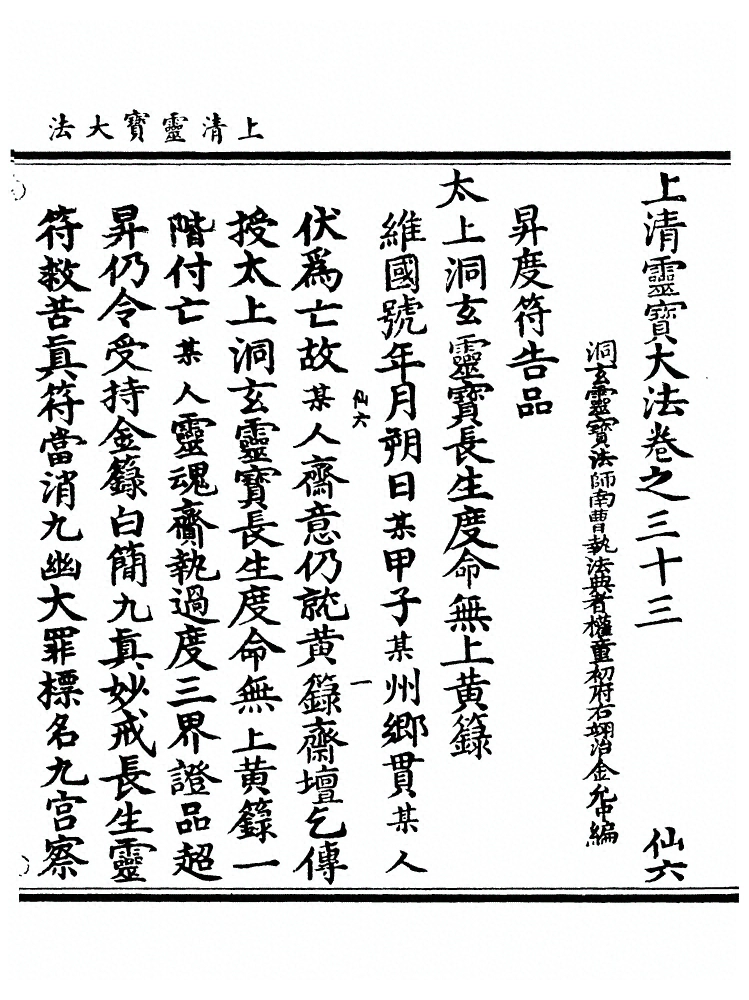 上清靈寶大法
上清靈寶大法卷之三十三　仙六
洞玄靈寶法師南曹執法典者權童初府右翊治金允中編
昇度符告品
太上洞玄靈寶長生度命無上黃籙
維國號年月朔日某甲子某州鄉貫某人
仙六　一
伏為亡故某人齋意仍就黃籙齋壇乞傳
授太上洞玄靈寶長生度命無上黃籙一
階付亡某人靈魂齎執過度三界證品超
昇仍令受持金籙白簡九真妙戒長生靈
符救苦真符當消九幽大罪標名九宮察